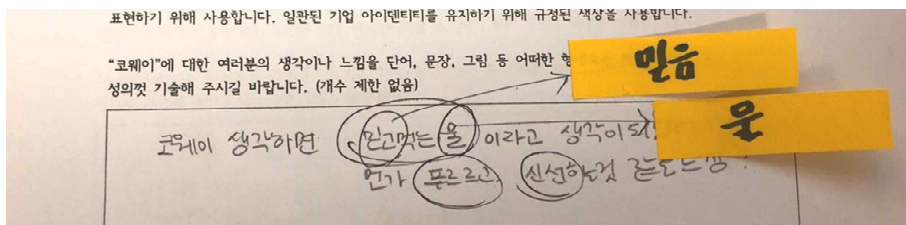 표현하기 위해 사용합니다. 일관된 기업 아이덴티티를 유지하기 위해 규정된 색상을 사용합니다.
"코웨이"에 대한 여러분의 생각이나 느낌을 단어, 문장, 그림 등 어떠한
성의껏 기술해 주시길 바랍니다. (개수 제한 없음)
믿음
물
코웨이 생각하면 믿고먹는 물 이라고 생각이
먼가 푸르르고 신선하는것 같은느낌!